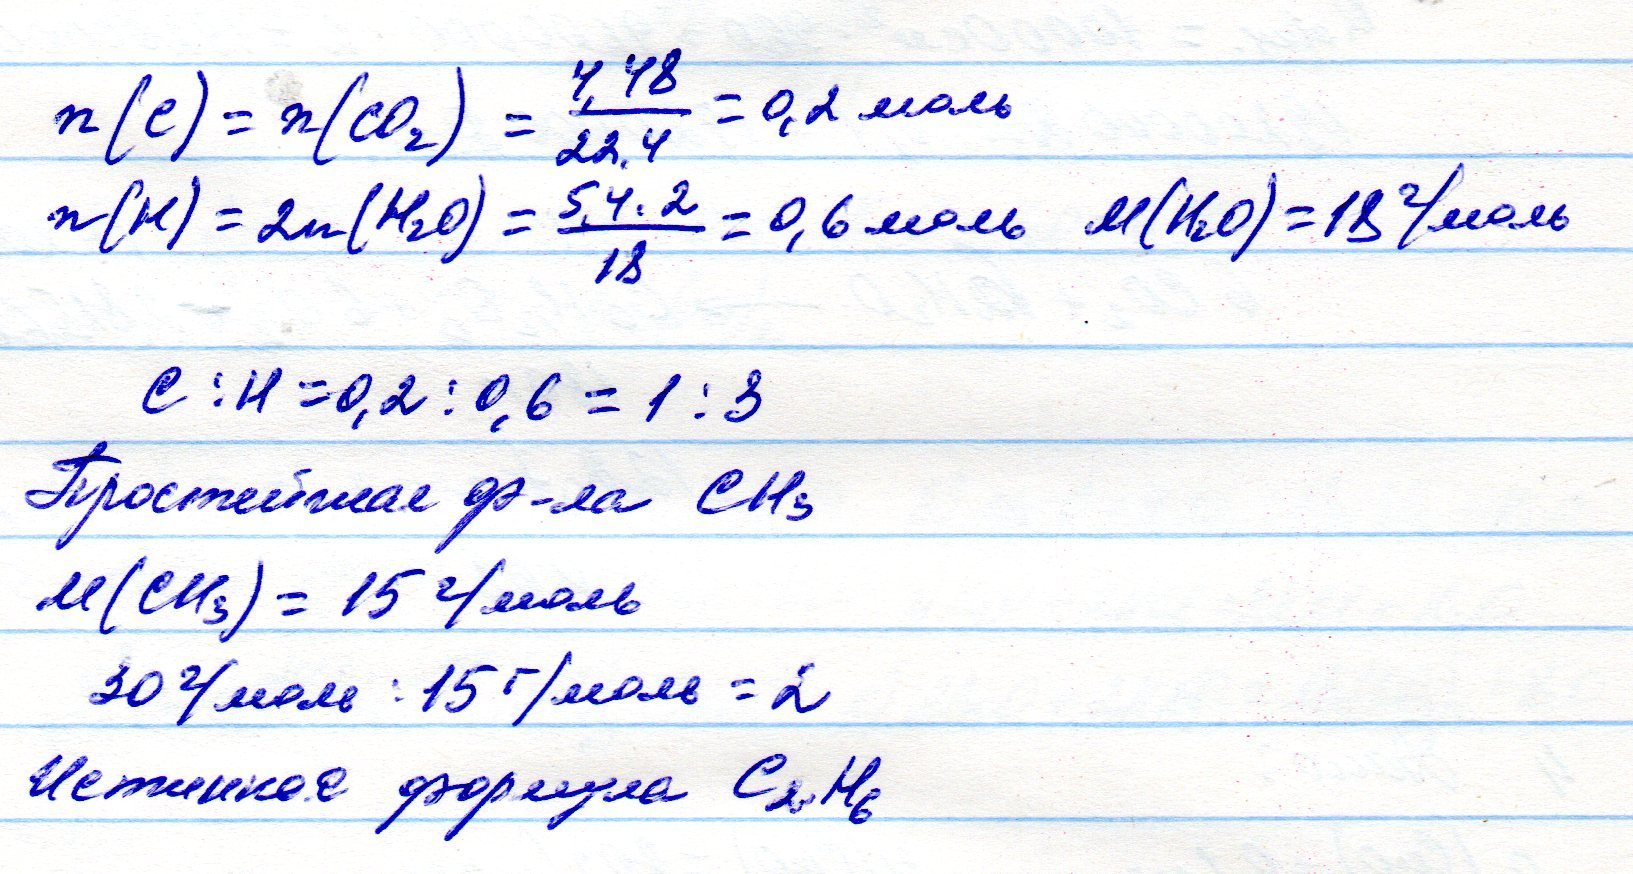 n(C) = n(CO₂) = 4,48/22.4 = 0,2 моль
n(H) = 2n(H₂O) = 5,4·2/18 = 0,6 моль M(H₂O) = 18 г/моль
C : H = 0,2 : 0,6 = 1 : 3
Простейшая ф-ла CH₃
M(CH₃) = 15 г/моль
30 г/моль : 15 г/моль = 2
Истинная формула C₂H₆